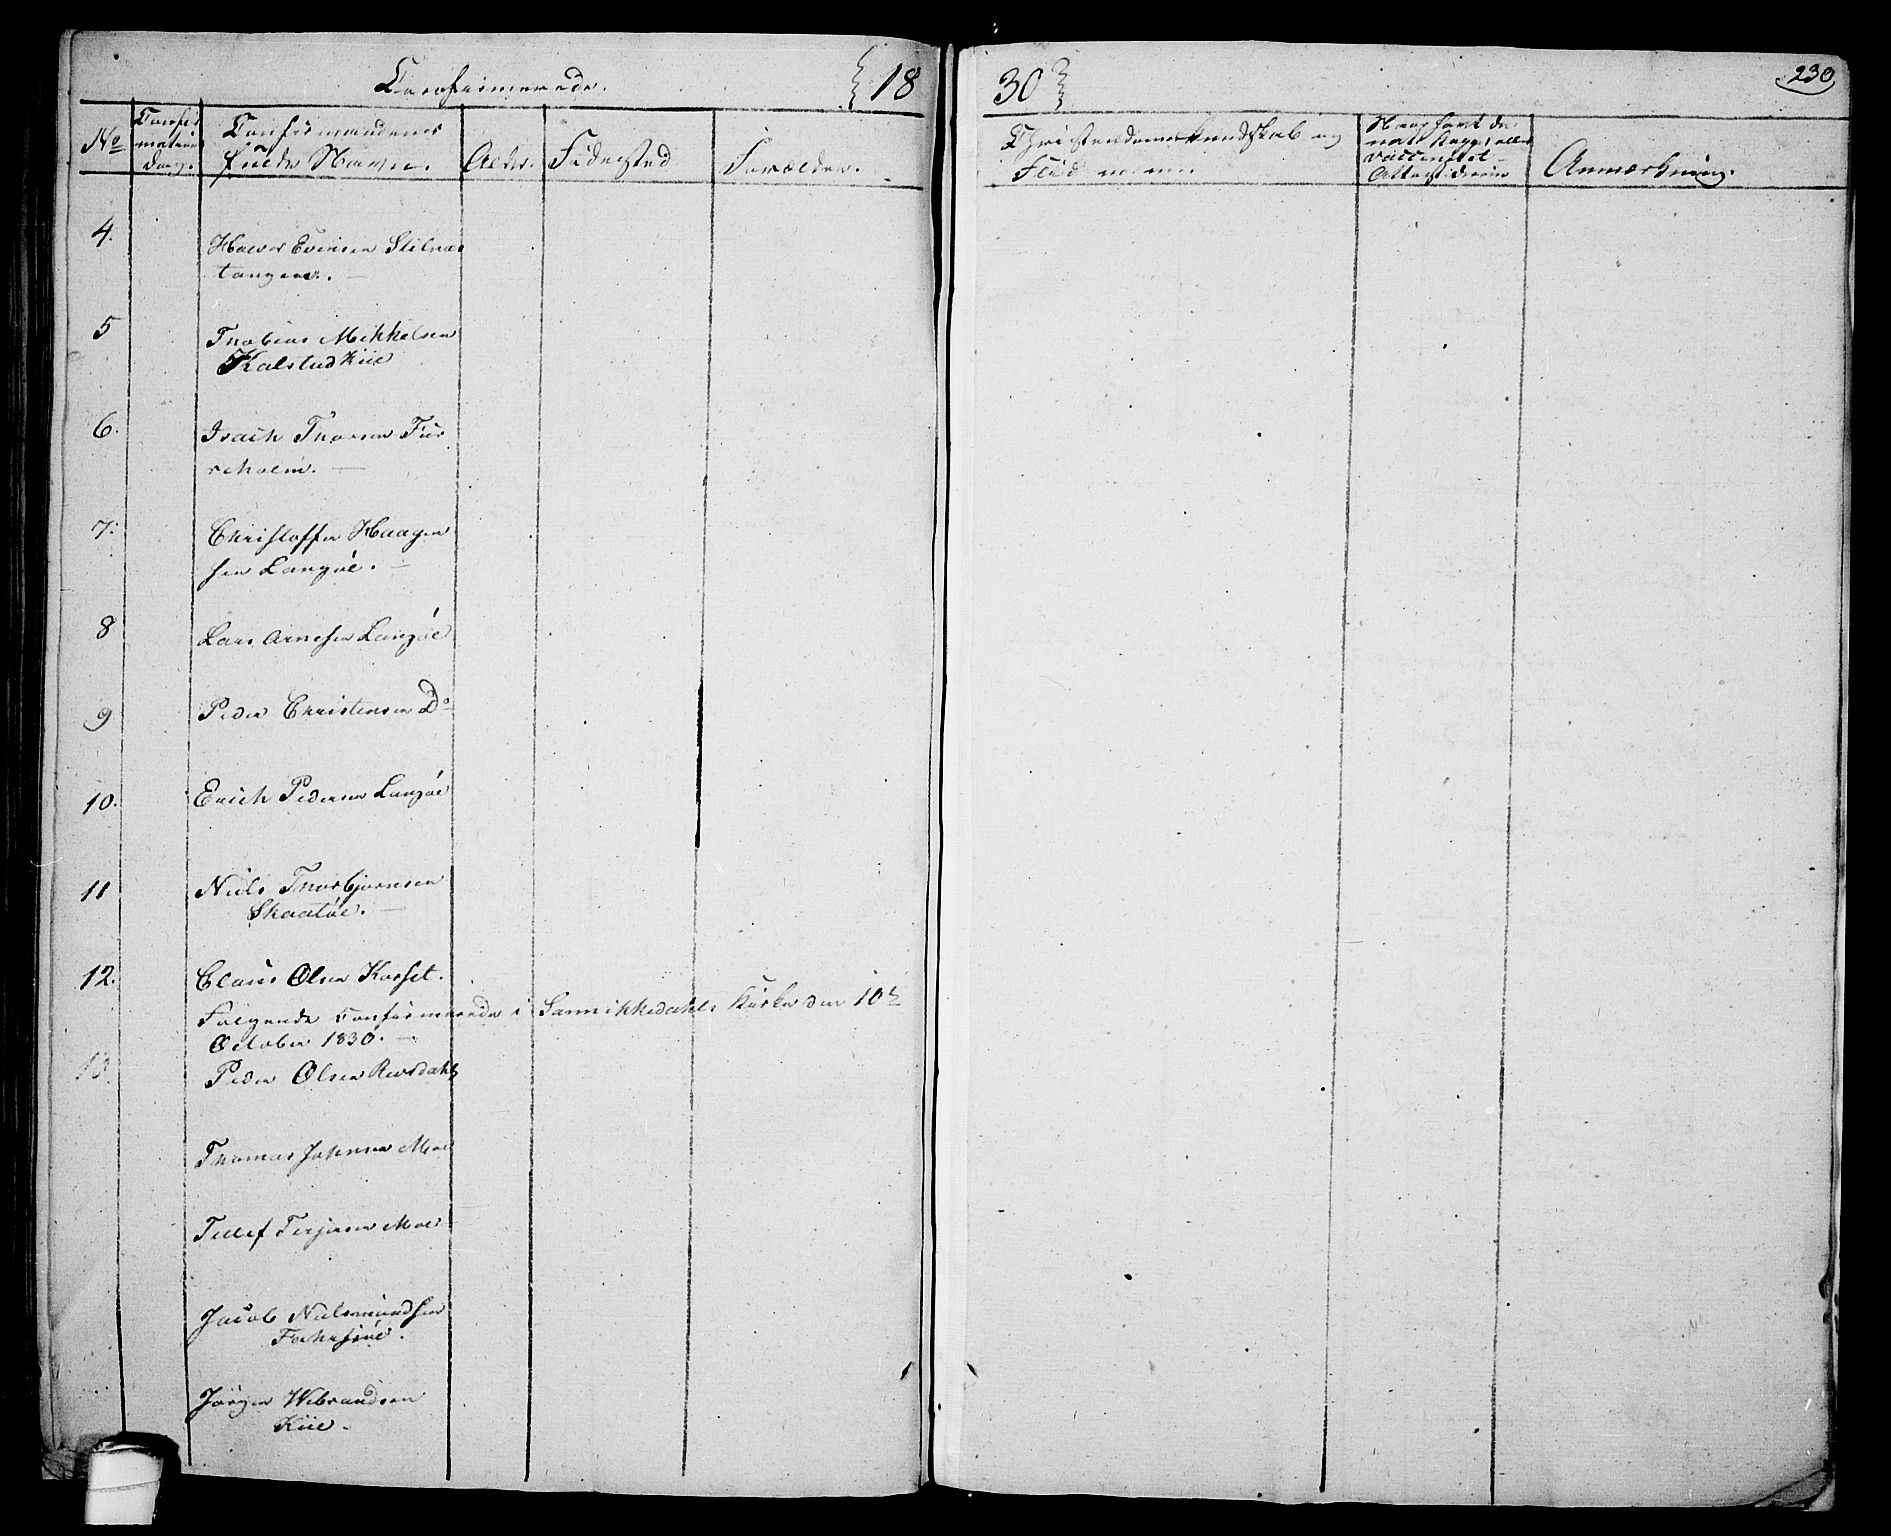 Confirmerede. 18
30 230
No
Confir
mations
Dag.
Confirmandens
fulde Navn.
Alder.
Födested
Forældre.
Christendomskundskab og
Flid m. m.
naturl. Kopper eller
Vaccineret
Attest derom
Anmærkning.
4. Halvor Evensen Stilnes
tangen.
5 Thobias Mikkelsen
Kalstadkiil
6. Isach Thorsen Fur
reholm.
7. Christoffer Haagen
sen Langöe.
8 Lars Arnesen Langöe
9 Peder Christensen Do
10. Erich Pedersen Langöe
11 Niels Thorbjörnsen
Skaatöe.
12. Claus Olsen Korset.
Fölgende Confirmerede i Sannikkedahls Kirke den 10de
October 1830.
13. Peder Olsen Reirsdahl
Thomas Johnsen Moe
Tellef Terjesen Moe
Jacob Nielsmundsen
Jörgen Wibrandsen
Kiil.